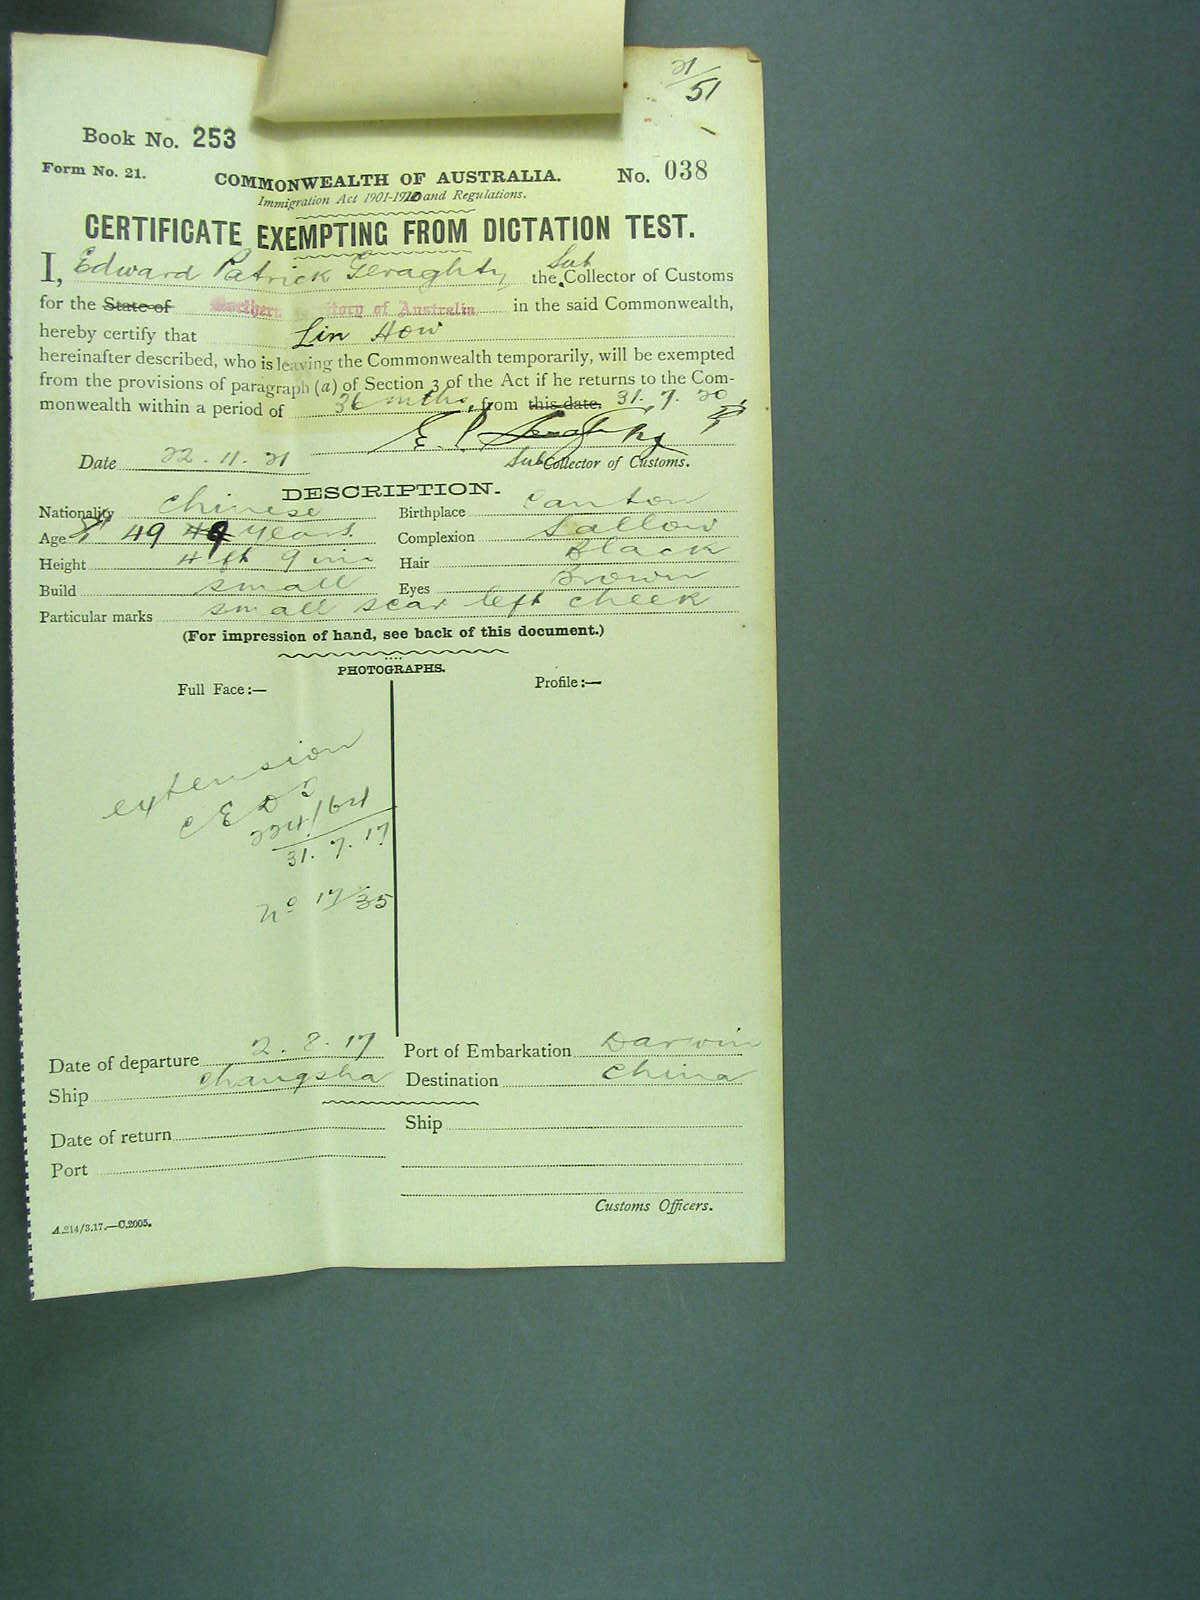 21/51
Book No. 253
Form No. 21.
COMMONWEALTH OF AUSTRALIA.
No. 038
Immigration Act 1901-1920 and Regulations.
CERTIFICATE EXEMPTING FROM DICTATION TEST.
I, Edward Patrick Geraghty the Sub Collector of Customs
for the State of Northern Territory of Australia in the said Commonwealth,
hereby certify that Lin How
hereinafter described, who is leaving the Commonwealth temporarily, will be exempted
from the provisions of paragraph (a) of Section 3 of the Act if he returns to the Com-
monwealth within a period of 36 mths, from this date. 31.7.20,
E. P. Geraghty
Date 22.11.21 Sub Collector of Customs.
DESCRIPTION.
Nationality Chinese Birthplace Canton
Age 49 49 years. Complexion Sallow
Height 4 ft 9 ins Hair Black
Build small Eyes Brown
Particular marks small scar left cheek
(For impression of hand, see back of this document.)
PHOTOGRAPHS.
Full Face:— Profile:—
extension
CEDT
224/64
31.7.17
No 17/35
Date of departure 2.8.17 Port of Embarkation Darwin
Ship Changsha Destination China
Date of return Ship
Port
Customs Officers.
A.214/3.17.—C.2005.